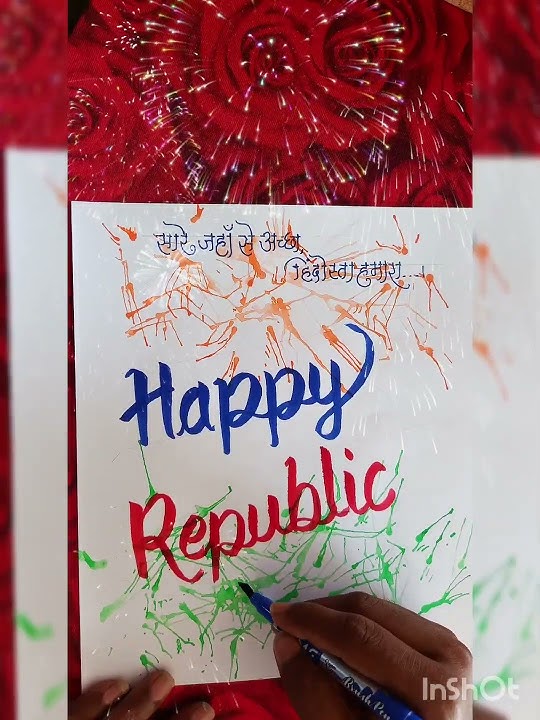 सारे जहाँ से अच्छा,
हिंदोस्ता हमारा....
Happy
Republic
Brush Pen
InShOt